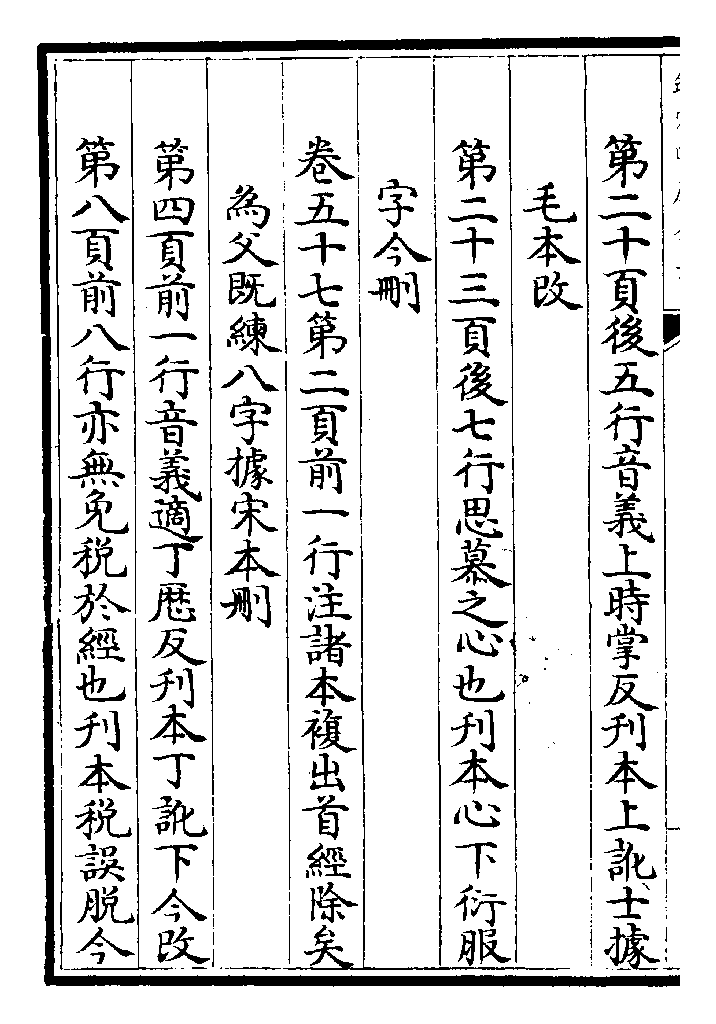 第二十頁後五行音義上時掌反刋本上訛士據
毛本改
第二十三頁後七行思慕之心也刋本心下衍服
字今刪
卷五十七第二頁前一行注諸本複出首經除矣
為父既練八字據宋本刪
第四頁前一行音義適丁厯反刋本丁訛下今改
第八頁前八行亦無免税於經也刋本税誤脱今